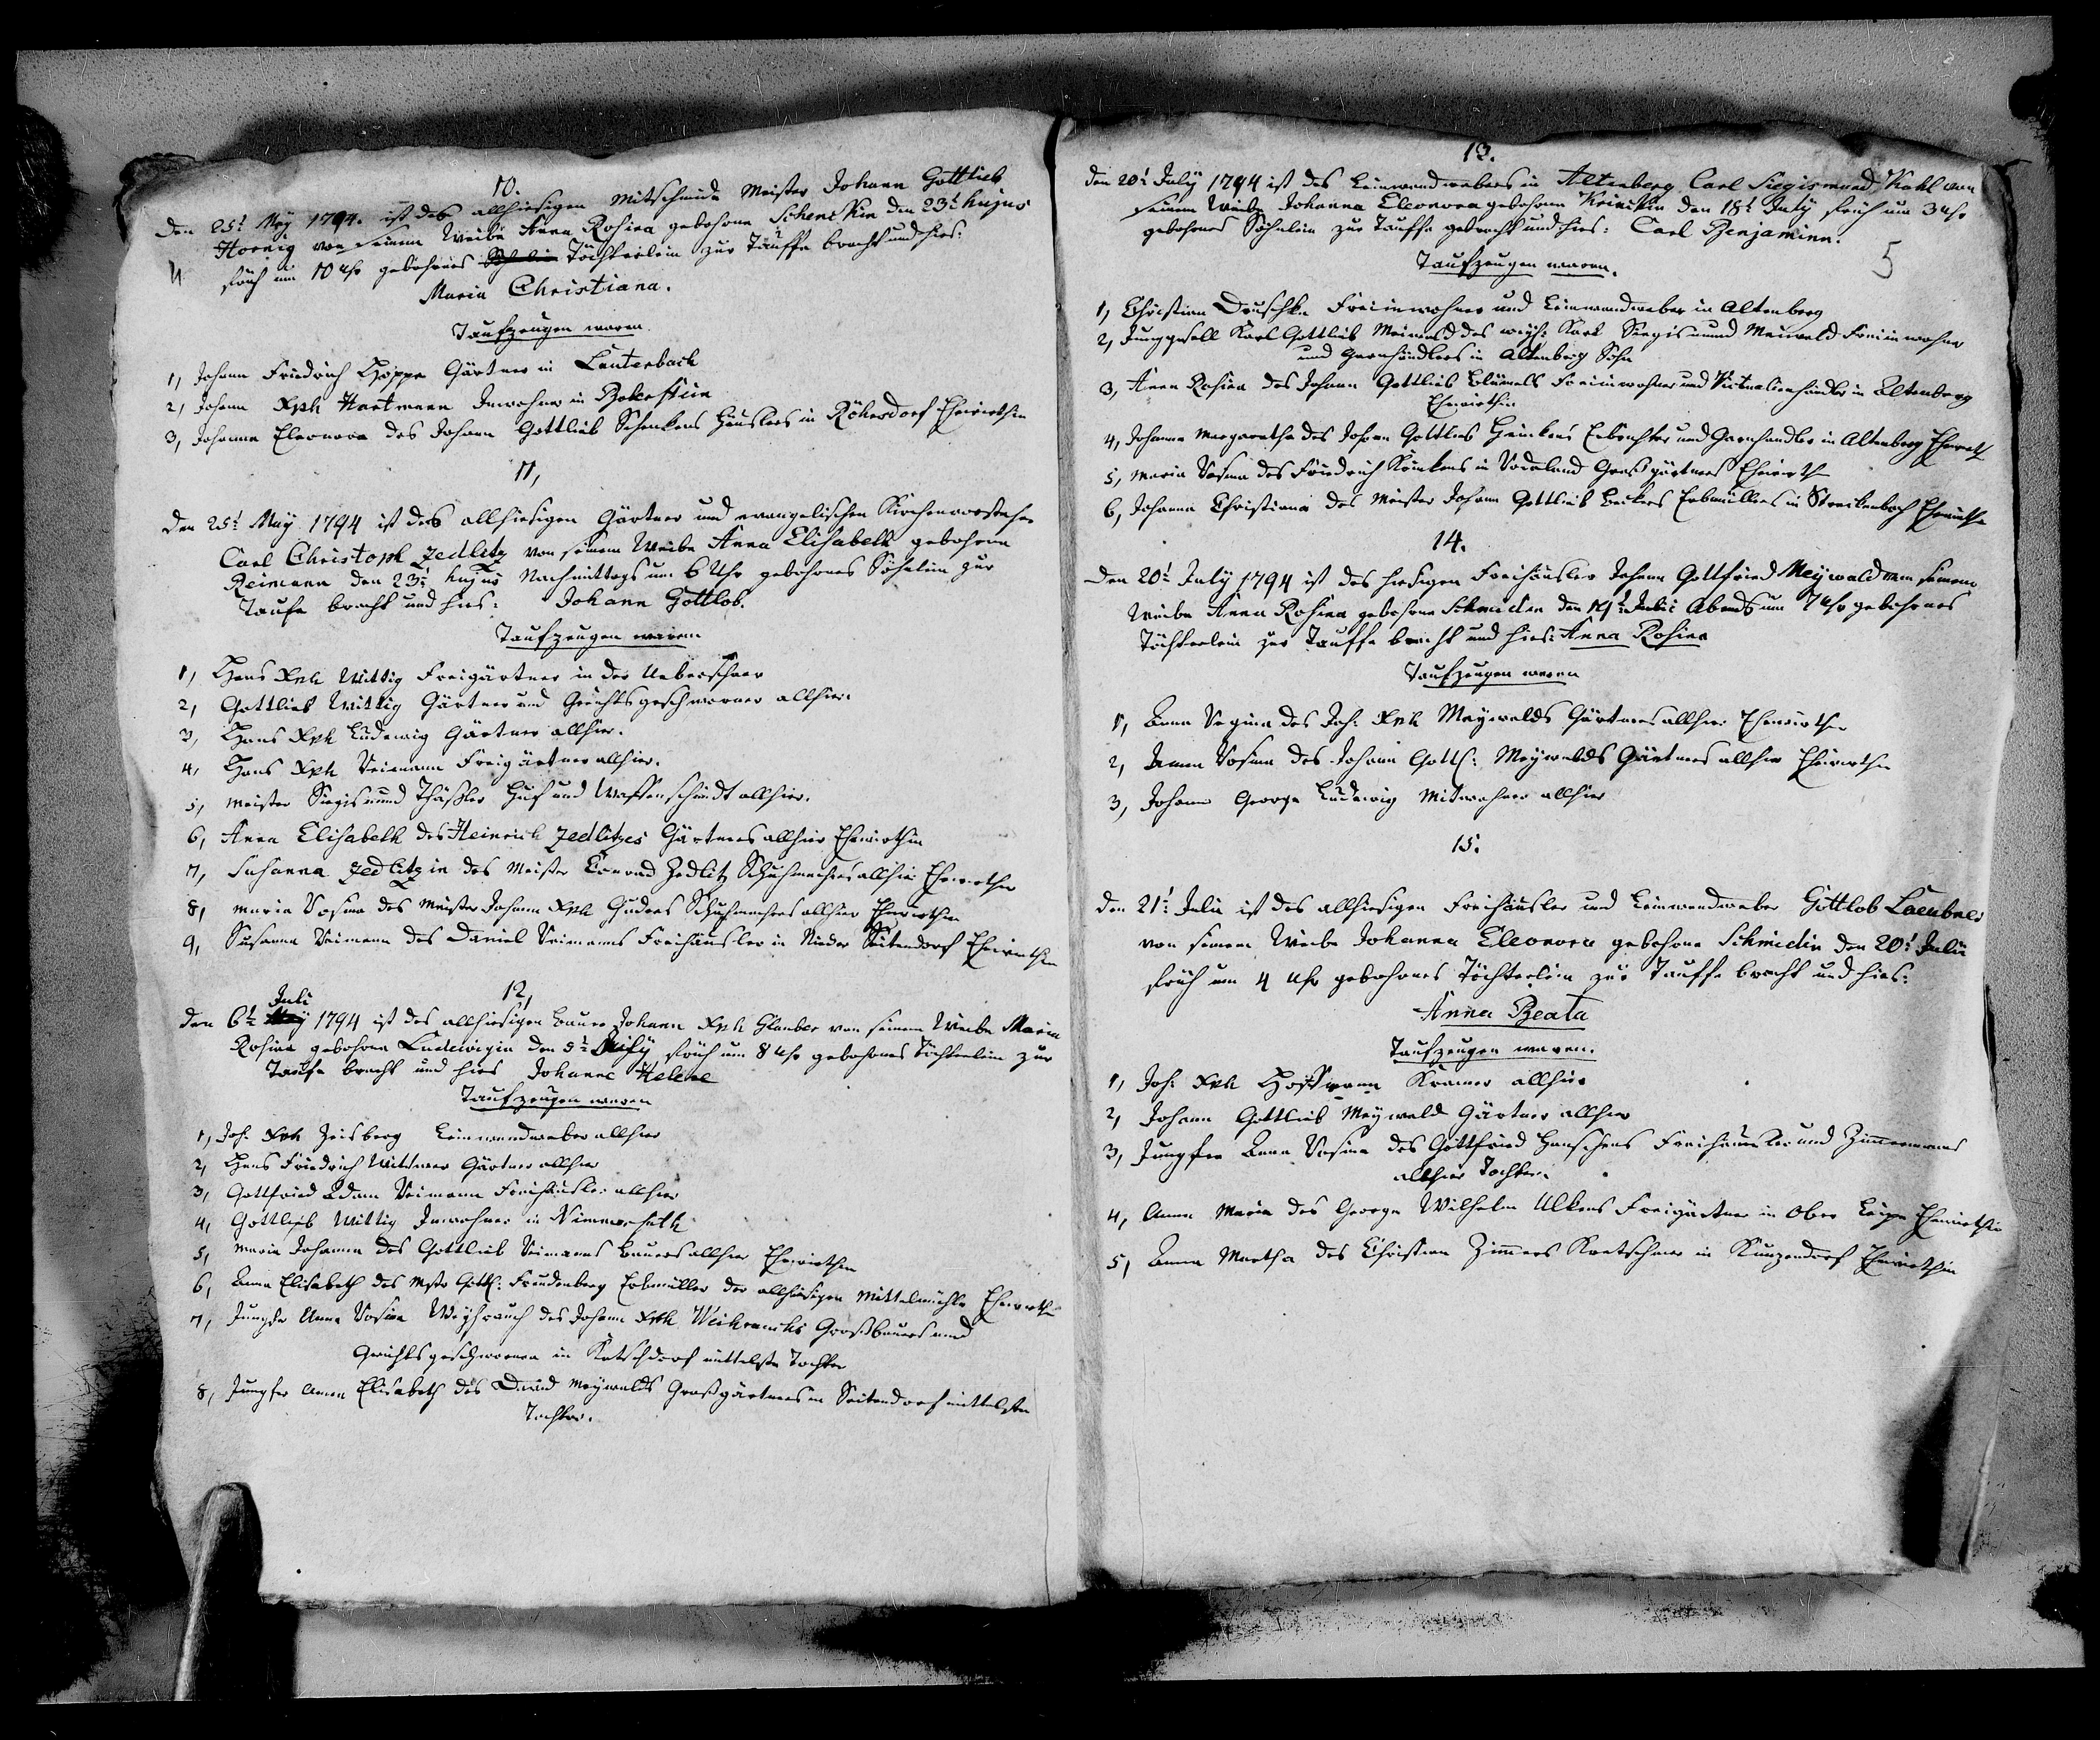 10.
Den 25t May 1794. ist des allhiesigen Mitschmids Meister Johann Gottlieb
Hornig von seinem Weibe Anna Rosina gebohrne Schenckin den 23t hujus
früh um 10 Uhr gebohrnes Söhnlein Töchterlein zur Tauffe bracht und hies:
Maria Christiana.
Taufzeugen waren.
1, Johann Friedrich Hoppe Gärtner in Lauterbach
2, Johann Xph Hartmann Inwohner in Boberstein
3, Johanna Eleonora des Johann Gottlieb Schenkens Häuslers in Röhrsdorf Ehewirthin
11,
Den 25t May 1794 ist des allhiesigen Gärtner und evangelischen Kirchenvorsteher
Carl Christoph Zedlitz von seinem Weibe Anna Elisabeth gebohrne
Reimann den 23t hujus Nachmittags um 6 Uhr gebohrnes Söhnlein zur
Taufe bracht und hies: Johann Gottlob.
Taufzeugen waren
1, Hans Xph Wittig Freigärtner in der Ueberschaar
2, Gottlieb Wittig Gärtner und Gerichtsgeschworner allhier.
3, Hans Xph Ludewig Gärtner allhier.
4, Hans Xph Reimann Freigärtner allhier.
5, Meister Siegismund Huf und Waffenschmidt allhier.
6, Anna Elisabeth des Heinrich Zedlitzes Gärtners allhier Ehewirthin
7, Susanna Zedlitzin des Meister Conrad Zedlitz Schuhmachers allhier Ehewirthin
8, Maria Rosina des Meister Johann Xph Guders Schuhmachers allhier Ehewirthin
9, Susanna Reimann des Daniel Reimanns Freihäusler in Nieder Seitendorf Ehewirthin
12,
Juli
Den 6t May 1794 ist des allhiesigen Bauer Johann Xph Glauber von seinem Weibe Maria
Rosina gebohrne Ludewigin den 5t früh um 8 Uhr gebohrnes Töchterlein zur
Taufe bracht und hies Johanne Helene
Taufzeugen waren
1, Joh: Xph Geisberg Leinwandweber allhier
2, Hans Friedrich Wittwer Gärtner allhier
3, Gottfried Adam Reimann Freihäusler allhier
4, Gottlieb Wittig Inwohner in Nimmersath
5, Maria Johanna des Gottlieb Reimanns Bauers allhier Ehewirthin
6, Anna Elisabeth des Mstr Gottl: Freudenberg Erbmüller der allhiesigen Mittelmühle Ehewirthin
7, Jungfr Anna Rosina Weyhrauch des Johann Xph Weihrauchs Großbauers und
Gerichtsgeschwornen in Ketschdorf mittelste Tochter
8, Jungfer Anna Elisabeth des David Meywalds Großgärtners in Seitendorf mittelste
Tochter.
13.
5
Den 20t July 1794 ist des Leinwandwebers in Altenberg Carl Siegismund Kahl von
seinem Weibe Johanna Eleonora gebohrne den 18t July früh um 3 Uhr
gebohrnes Söhnlein zur Tauffe gebracht und hies: Carl Benjaminn.
Taufzeugen waren.
1, Christian Druschke Freiinwohner und Leinwandweber in Altenberg
2, Junggesell Karl Gottlieb Meiwald des Karl Siegismund Meiwald Freiinwohner
und Garnhändlers in Altenberg Sohn
3, Anna Rosina des Johann Gottlieb Blümels Freiinwohner und Victualienhändler in Altenberg
Ehewirthin
4, Johanna Margaretha des Johann Gottlieb und Garnhändler in Altenberg Ehewirth
5, Maria Rosina des Friedrich in Großgärtners Ehewirth
6, Johanna Christiana des Meister Johann Gottlieb Beckers Erbmüllers in Streckenbach Ehewirthin
14.
Den 20t July 1794 ist des hiesigen Freihäusler Johann Gottfried Meywald von seinem
Weibe Anna Rosina gebohrne Schmidin den 19t Julii Abends um 7 Uhr gebohrnes
Töchterlein zur Tauffe bracht und hies: Anna Rosina
Taufzeugen waren
1, Anna Regina des Joh: Xph Meywalds Gärtners allhier Ehewirthin
2, Anna Rosina des Johann Gottf: Meywalds Gärtners allhier Ehewirthin
3, Johann George Ludewig Mitwohner allhier
15.
Den 21t Julii ist des allhiesigen Freihäusler und Leinwandweber Gottlob Laeubner
von seinem Weibe Johanna Eleonora gebohrne Schmidin den 20t Julii
früh um 4 Uhr gebohrnes Töchterlein zur Tauffe bracht und hies:
Anna Beata
Taufzeugen waren.
1, Joh: Xph Hoffmann Kramer allhier
2, Johann Gottlieb Meywald Gärtner allhier
3, Jungfer Anna Rosina des Gottfried Hanschens Freihäusler und Zimmermanns
allhier Tochter.
4, Anna Maria des George Wilhelm Ulkens Freigärtner in Ober Leipe Ehewirthin
5, Anna Martha des Christian Zimmers Kretschmer in Kunzendorf Ehewirthin